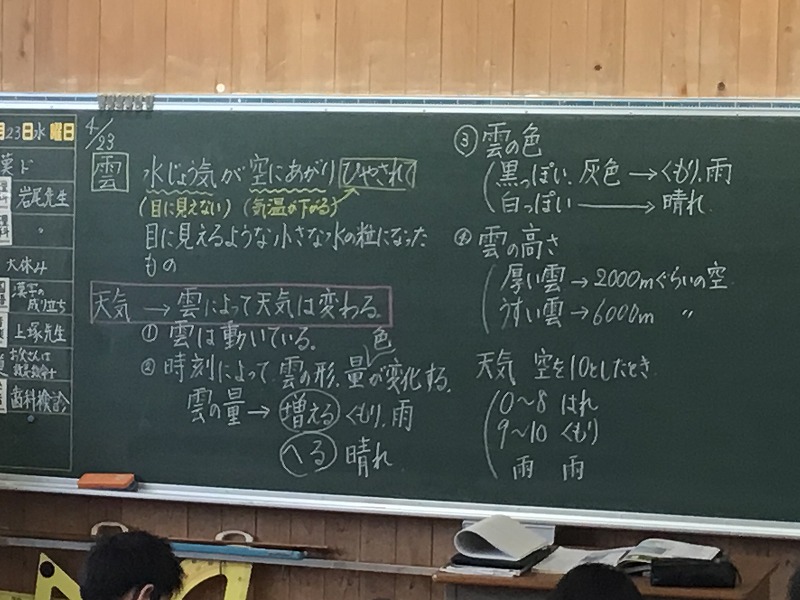 月23日水曜日
漢ド
岩尾先生
〃
大休み
漢字の
成り立ち
上塚先生
お父さんは
歯科検診
4/23
雲
水じょう気が空にあがりひやされて
(目に見えない)(気温が下がる)
目に見えるような小さな水の粒になった
もの
天気→雲によって天気は変わる。
①雲は動いている。
色
②時刻によって、雲の形、量が変化する。
雲の量→増える くもり、雨
へる 晴れ
③雲の色
黒っぽい、灰色→くもり、雨
白っぽい→晴れ
④雲の高さ
厚い雲→2000mぐらいの空
うすい雲→6000m 〃
天気 空を10としたとき
0〜8 はれ
9〜10 くもり
雨 雨